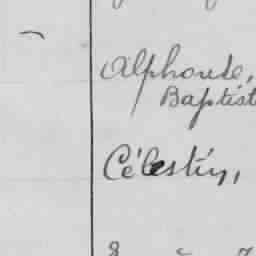 Alphonse,
Baptist
Célestin,